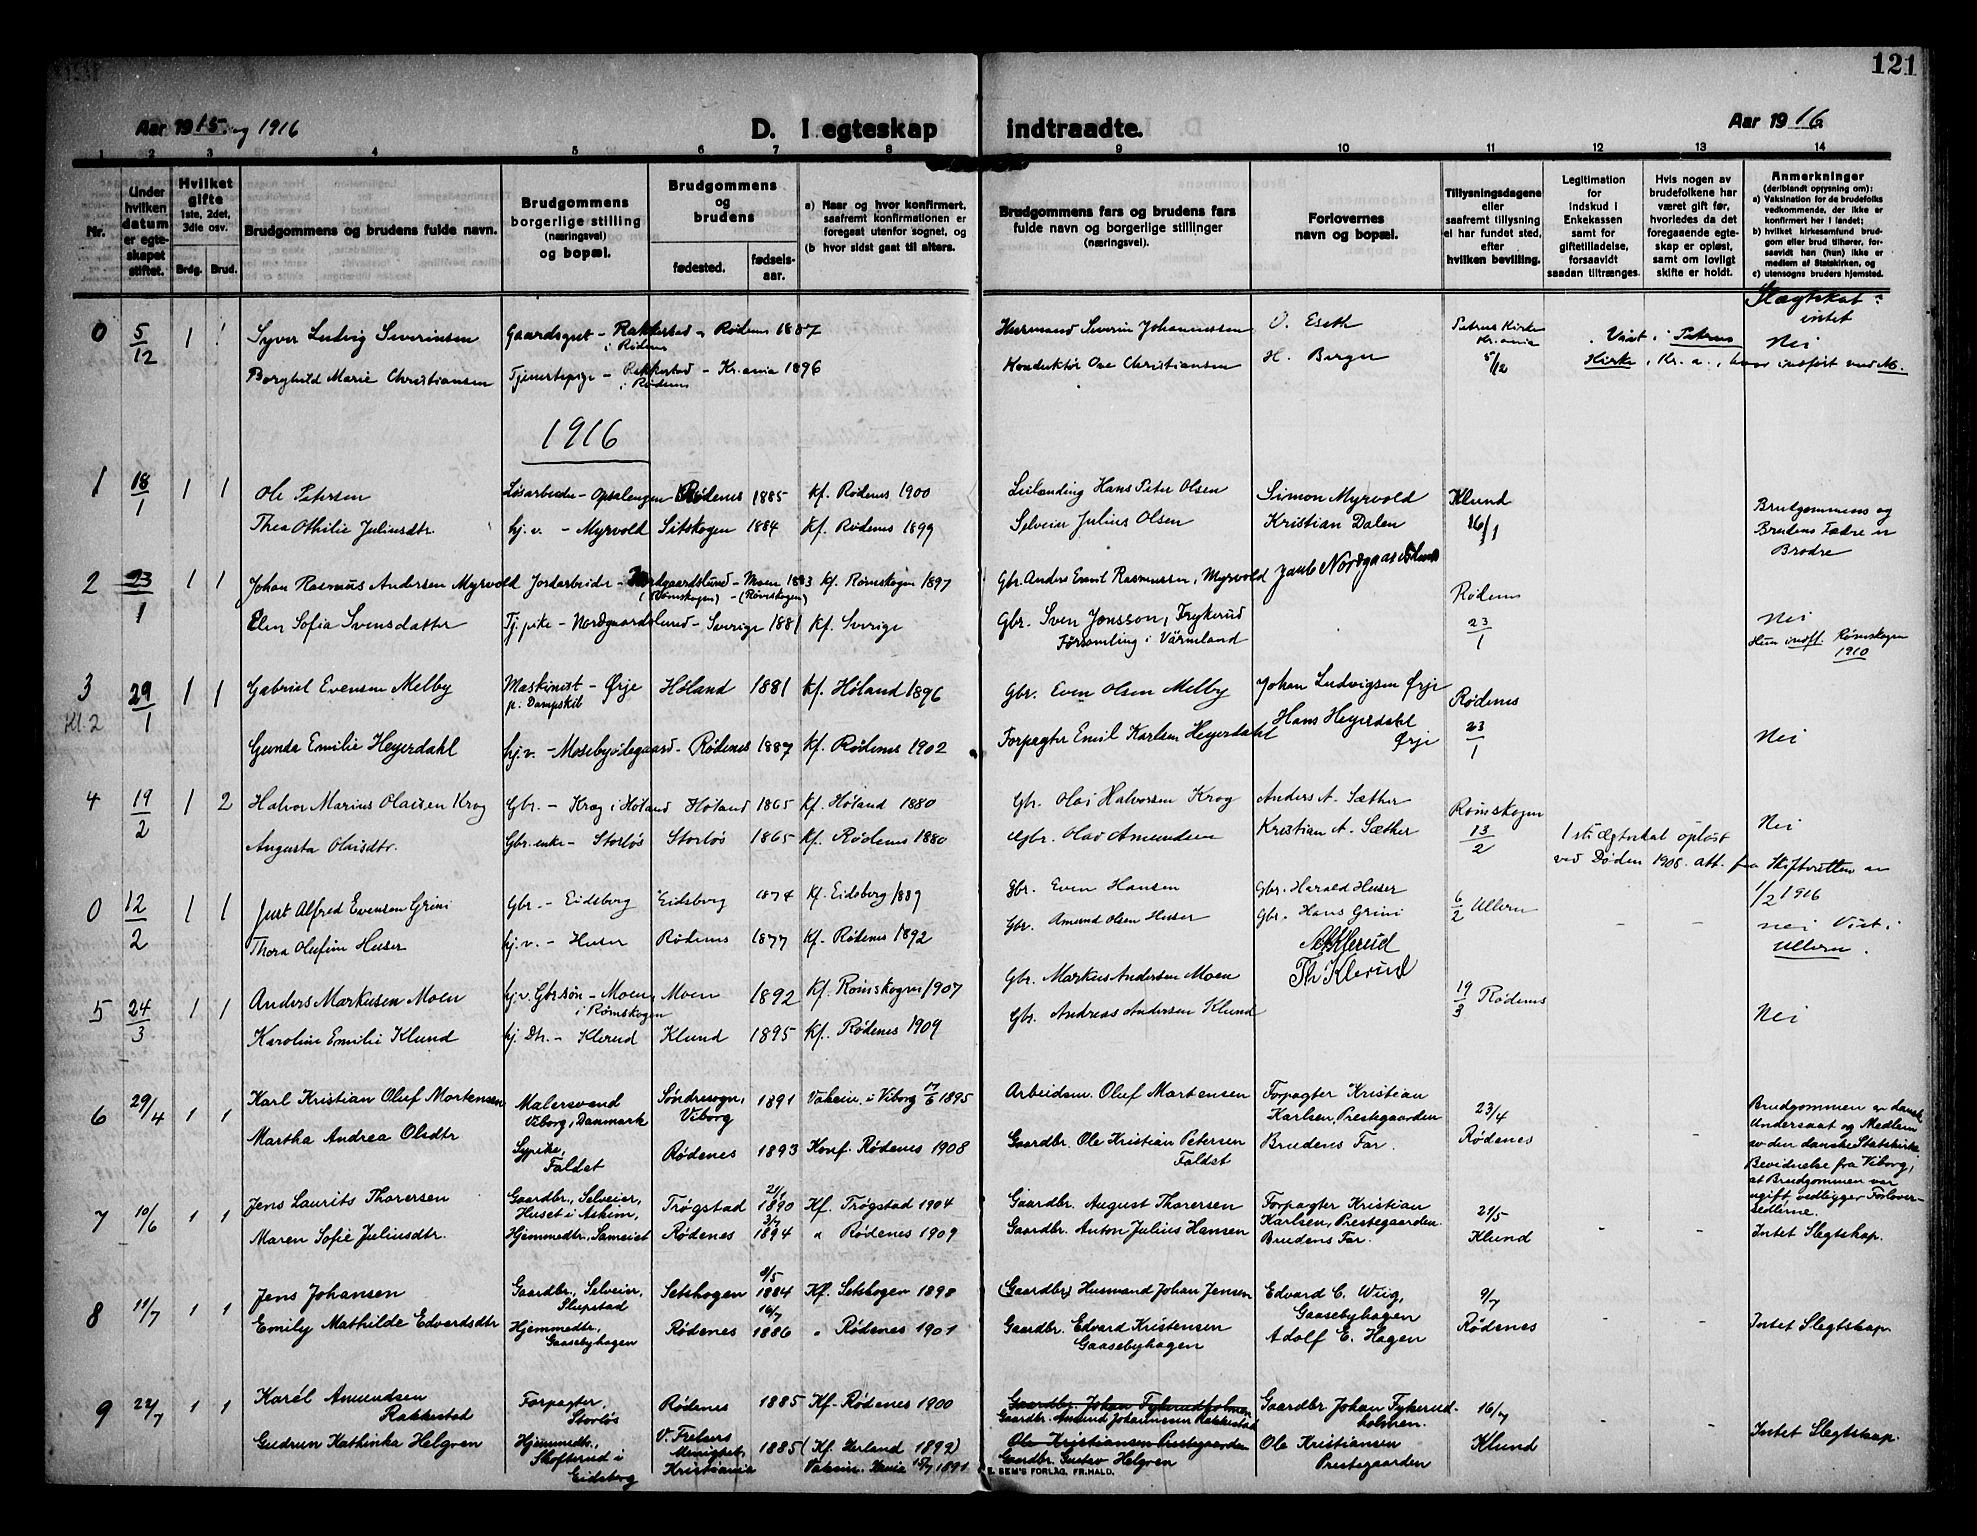 121
Aar 1915 og 1916
D. I egteskap indtraadte.
Aar 1916
1 2 3 4 5 6 7 8 9 10 11 12 13 14
Nr.
Under hvilken datum er egteskapet stiftet.
Hvilket gifte
1ste, 2det, 3die osv.
Brdg. Brud.
Brudgommens og brudens fulde navn.
Brudgommens borgerlige stilling (næringsvei) og bopæl.
Brudgommens og brudens
fødested.
fødselsaar.
a) Naar og hvor konfirmert, saafremt konfirmationen er foregaat utenfor sognet, og
(b hvor sidst gaat til alters.
Brudgommens fars og brudens fars fulde navn og borgerlige stillinger (næringsvei).
Forlovernes navn og bopæl.
Tillysningsdagene eller saafremt tillysning ei har fundet sted, efter hvilken bevilling.
Legitimation for indskud i Enkekassen samt for giftetilladelse, forsaavidt saadan tiltrænges.
Hvis nogen av brudefolkene har været gift før, hvorledes da det foregaaende egteskap er opløst, samt om lovligt skifte er holdt.
Anmerkninger
(deriblandt oplysning om):
a) Vaksination for de brudefolks vedkommende, der ikke er konfirmert her i landet;
b) hvilket kirkesamfund brudgom eller brud tilhører, forsaavidt han (hun) ikke er medlem av Statskirken, og
c) utensogns bruders hjemsted.
Slægtskat: intet
0 5/12 1 1 Syver Ludvig Severinsen Gaardsgut - Rakkestad i Rødenes - Rødenes 1887 Husmand Severin Johannessen O. Eseth Petrus Kirke Kr.ania 5/12 Viet i Petrus Nei
Borghild Marie Christiansen Tjenestepige - Rakkestad i Rødenes - Kr.ania 1896 Konduktør Ove Christiansen H. Berger Kirke, Kr. a., indført ved M.
1916
1 18/1 1 1 Ole Petersen Løsarbeider - Opsalengen Rødenes 1885 Kf. Rødenes 1900 Leilending Hans Peter Olsen Simon Myrvold Klund 16/1 Brudgommens og
Thea Othilie Juliusdtr hj.v. - Myrvold Setskogen 1884 Kf. Rødenes 1899 Selveier Julius Olsen Kristian Dalen Brudens Fædre er Brødre
2 23/1 1 1 Johan Rasmus Andersen Myrvold Jordarbeider - Nordgaardslund (Rømskogen) - Moen (Rømskogen) 1883 Kf. Rømskogen 1897 Gbr. Anders Emil Rasmussen, Myrvold Rødenes 23/1
Elen Sofia Svensdatter Tj.pike - Nordgaardslund - Sverige 1881 Kf. Sverige Gbr. Sven Jonsson, Frykerud Församling i Värmland Nei
Hun indfl. Rømskogen 1910
3 Kl. 2 29/1 1 1 Gabriel Evensen Melby Maskinist p. Dampskib - Ørje Høland 1881 Kf. Høland 1896 Gbr. Even Olsen Melby Johan Ludvigsen Ørje Rødenes 23/1
Gunda Emilie Heyerdahl hj.v. - Mosebyødegaard - Rødenes 1887 Kf. Rødenes 1902 Forpagter Emil Karlsen Heyerdahl Hans Heyerdahl Ørje Nei
4 19/2 1 2 Halvor Marius Olaisen Krog Gbr. - Krog i Høland Høland 1865 Kf. Høland 1880 Gbr. Olai Halvorsen Krog Anders A. Sæther Rømskogen 13/2 Nei
Augusta Olaisdtr. Gbr.enke - Storløs Storløs 1865 Kf. Rødenes 1880 Gbr. Olav Amundsen Kristian A. Sæther 1ste Ægteskab opløst ved Døden 1908. att. fra Skifteretten av 1/2 1916
0 12/2 1 1 Just Alfred Evensen Grini Gbr. - Eidsberg Eidsberg 1874 Kf. Eidsberg 1889 Gbr. Even Hansen Gbr. Harald Huser 6/2 Ullern - - nei Viet i Ullern.
Thora Olufine Huser hj.v. - Huser Rødenes 1877 Kf. Rødenes 1892 Gbr. Amund Olsen Huser Gbr. Hans Grini
5 24/3 1 1 Anders Markusen Moen hj.v. Gbr.søn - Moen i Rømskogen Moen 1892 Kf. Rømskogen 1907 Gbr. Markus Andersen Moen A Klerud 19/3 Rødenes Nei
Karoline Emilie Klund hj. Dtr. - Klerud Klund 1895 Kf. Rødenes 1909 Gbr. Andreas Andersen Klund Th Klerud
6 29/4 1 1 Karl Kristian Oluf Mortensen Malersvend Viborg, Danmark Søndresogn, Viborg 1891 Vaksin. i Viborg 17/6 1895 Arbeidsm. Oluf Mortensen Forpagter Kristian Karlsen, Prestegaarden 23/4 Rødenes - - Brudgommen er dansk Undersaat og Medlem av den danske Statskirke. Bevidnelse fra Viborg, at Brudgommen var ugift, vedligger Forloversedlerne.
Martha Andrea Olsdtr Sypike, Faldet Rødenes 1893 Konf. Rødenes 1908 Gaardbr. Ole Kristian Petersen Faldet Brudens Far.
7 10/6 1 1 Jens Laurits Thoresen Gaardbr., Selveier, Huset i Askim, Trøgstad 21/1 1890 Kf. Trøgstad 1904 Gaardbr. August Thoresen Forpagter Kristian Karlsen, Prestegaarden. 21/5 Klund - -
Maren Sofie Juliusdtr. Hjemmedtr., Sameiet Rødenes 3/7 1894 " Rødenes 1909 Gaardbr. Anton Julius Hansen Brudens Far. Intet Slegtskap.
8 11/7 1 1 Jens Johansen Gaardbr., Selveier, Slupstad Setskogen 8/5 1884 Kf. Setskogen 1898 (Gaardbr) Husmand Johan Jensen Edvard C. Wiig, Gaasebyhagen 9/7 Rødenes - -
Emily Mathilde Edvardsdtr Hjemmedtr., Gaasebyhagen Rødenes 16/7 1886 " Rødenes 1901 Gaardbr. Edvard Kristensen Gaasebyhagen Adolf E. Hagen Intet Slegtskap.
9 22/7 1 1 Karél Amundsen Rakkestad Forpagter, Storløs Rødenes 1885 Kf. Rødenes 1900 Gaardbr. Johan Fykerudholmen Gaardbr. Amund Johannessen Rakkestad Gaardbr Johan Fykerudholmen. 16/7 Klund
Gudrun Kathinka Helgren Hjemmedtr., Skofterud i Eidsberg V. Frelsers Menighet, Kristiania 1885 (Kf. Herland 1899) Vaksin. 15/7 1891 Ole Kristiansen Prestegaarden Gaardbr. Gustav Helgren Ole Kristiansen Prestegaarden Intet Slegtskap.
E. SEM'S FORLAG, FR.HALD.